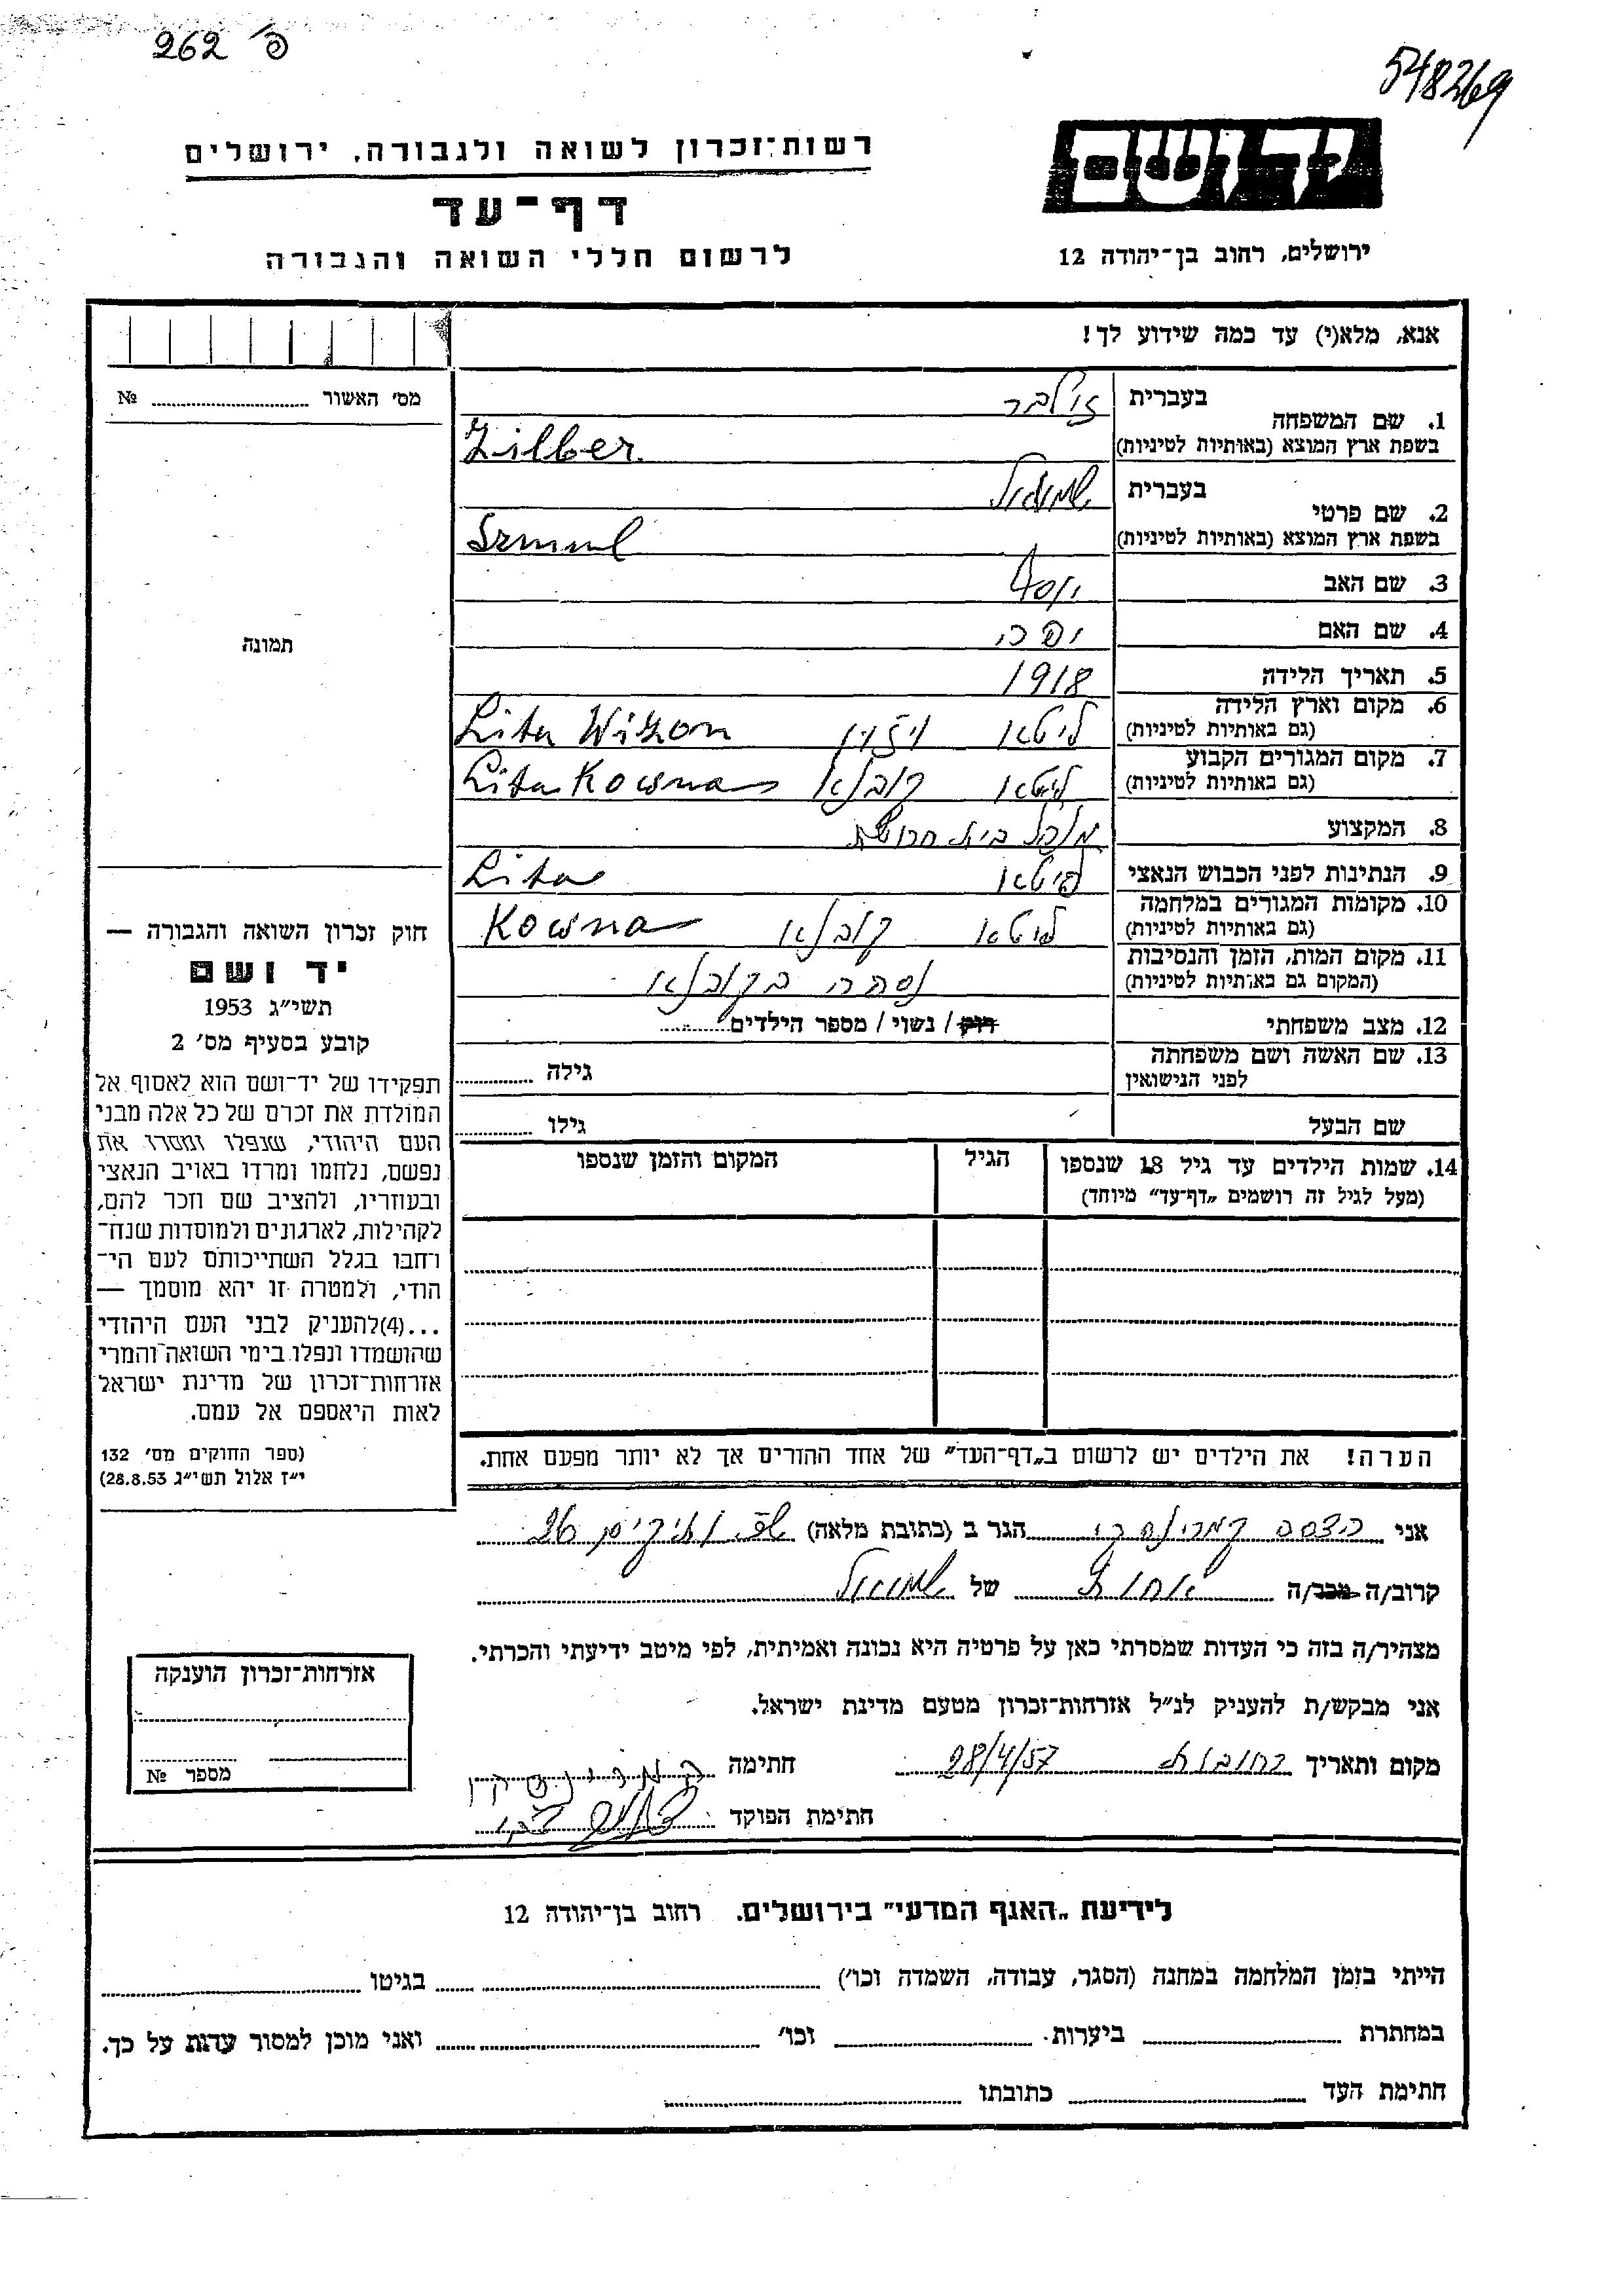 262 פ'
548269
רשות־זכרון לשואה ולגבורה, ירושלים
דף־עד
לרשום חללי השואה והגבורה
יד ושם
ירושלים, רחוב בן־יהודה 12
אנא, מלא(י) עד כמה שידוע לך!
מס' האשור № 
1. שם המשפחה
בעברית זילבר
בשפת ארץ המוצא (באותיות לטיניות) Zilber
2. שם פרטי
בעברית שמואל
בשפת ארץ המוצא (באותיות לטיניות) Szmul
3. שם האב יוסף
4. שם האם
5. תאריך הלידה 1918
6. מקום וארץ הלידה
(גם באותיות לטיניות) ליטא ויזון Lita Wizon
7. מקום המגורים הקבוע
(גם באותיות לטיניות) ליטא קובנא Lita Kowna
8. המקצוע מנהל בית חרושת
9. הנתינות לפני הכבוש הנאצי ליטא Lita
10. מקומות המגורים במלחמה
(גם באותיות לטיניות) ליטא קובנא Kowna
11. מקום המות, הזמן והנסיבות
(המקום גם באותיות לטיניות) נספה בקובנא
12. מצב משפחתי רווק / נשוי / מספר הילדים
13. שם האשה ושם משפחתה
לפני הנישואין גילה
שם הבעל גילו
14. שמות הילדים עד גיל 18 שנספו
(מעל לגיל זה רושמים „דף־עד" מיוחד)
הגיל
המקום והזמן שנספו
הערה! את הילדים יש לרשום ב„דף־העד" של אחד ההורים אך לא יותר מפעם אחת.
תמונה
חוק זכרון השואה והגבורה —
יד ושם
תשי"ג 1953
קובע בסעיף מס' 2
תפקידו של יד־ושם הוא לאסוף אל
המולדת את זכרם של כל אלה מבני
העם היהודי, שנפלו ומסרו את
נפשם, נלחמו ומרדו באויב הנאצי
ובעוזריו, ולהציב שם וזכר להם,
לקהילות, לארגונים ולמוסדות שנח־
רבו בגלל השתייכותם לעם הי־
הודי, ולמטרה זו יהא מוסמך —
...(4)להעניק לבני העם היהודי
שהושמדו ונפלו בימי השואה והמרי
אזרחות־זכרון של מדינת ישראל
לאות היאספם אל עמם.
(ספר החוקים מס' 132
י"ז אלול תשי"ג 28.8.53)
אני הדסה הגר ב (כתובת מלאה)
קרוב/ה מכר/ה אחות של שמואל
מצהיר/ה בזה כי העדות שמסרתי כאן על פרטיה היא נכונה ואמיתית, לפי מיטב ידיעתי והכרתי.
אני מבקש/ת להעניק לנ"ל אזרחות־זכרון מטעם מדינת ישראל.
מקום ותאריך רחובות 28/4/57 חתימה
חתימת הפוקד
אזרחות־זכרון הוענקה
מספר №
לידיעת „האגף המדעי" בירושלים. רחוב בן־יהודה 12
הייתי בזמן המלחמה במחנה (הסגר, עבודה, השמדה וכו') בגיטו
במחתרת ביערות וכו' ואני מוכן למסור עדות על כך.
חתימת העד כתובתו